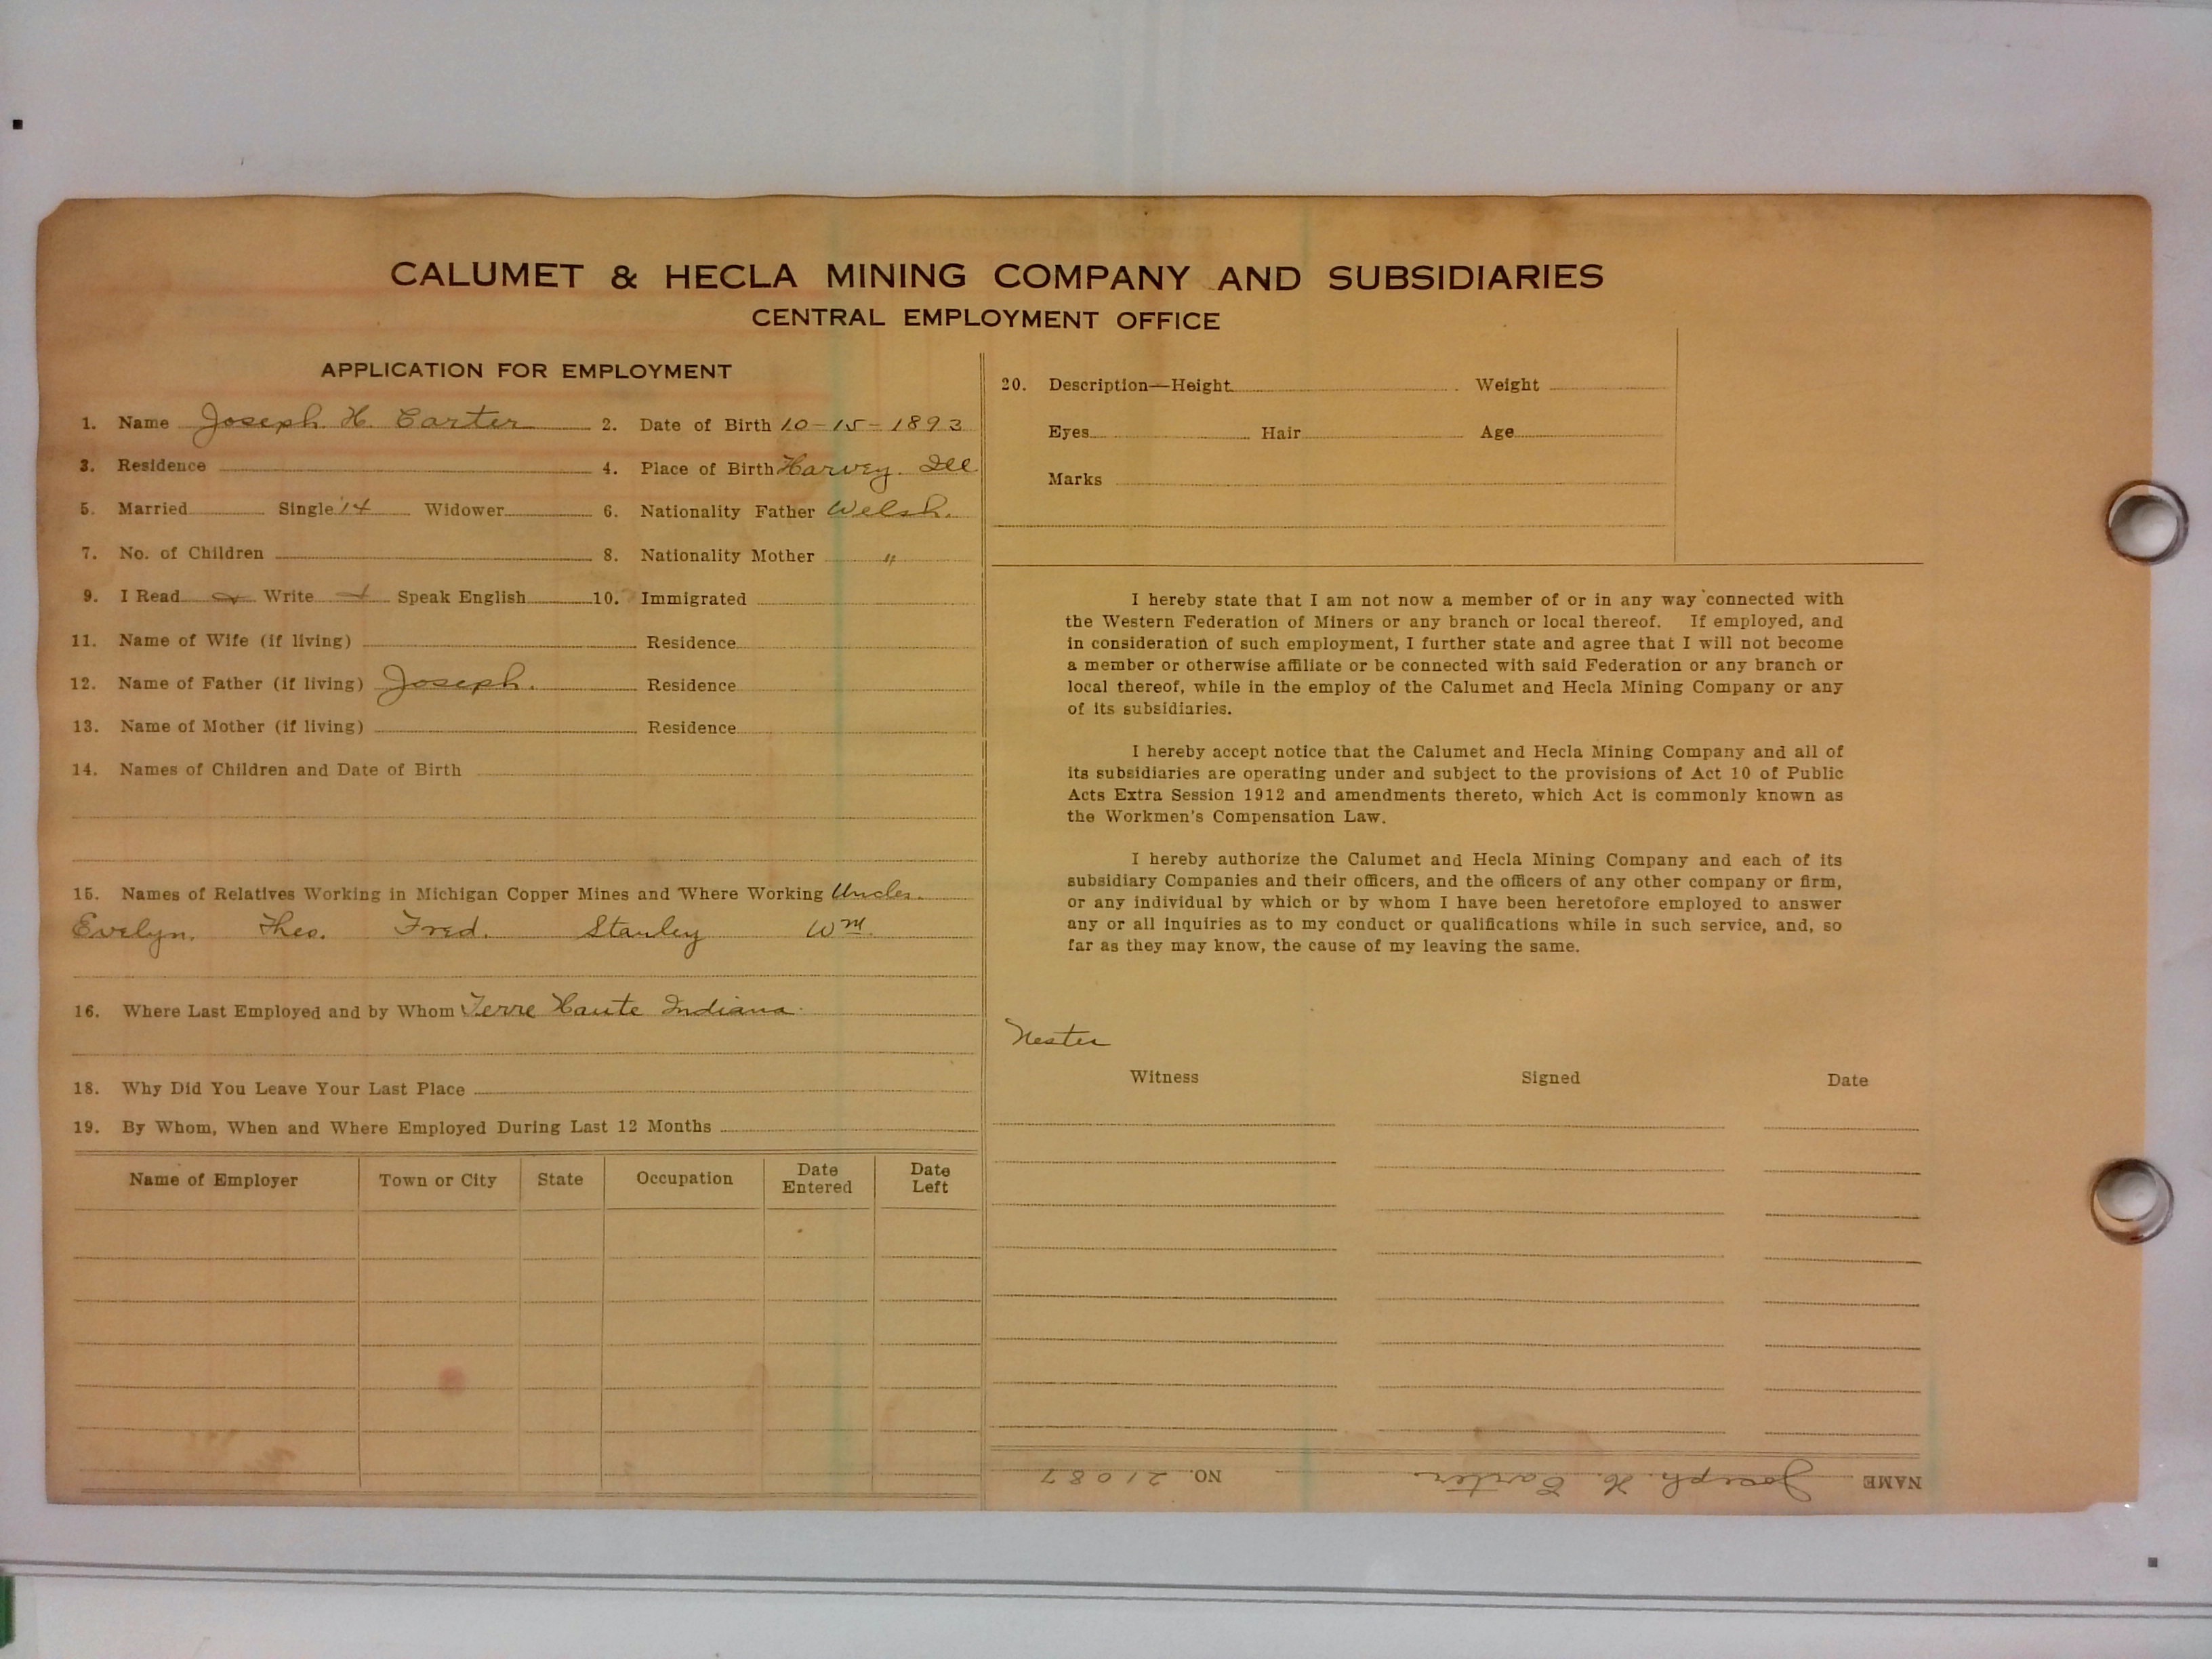 CALUMET & HECLA MINING COMPANY AND SUBSIDIARIES
CENTRAL EMPLOYMENT OFFICE
APPLICATION FOR EMPLOYMENT
1. Name Joseph H. Carter 2. Date of Birth 10-15-1893
3. Residence 4. Place of Birth Harvey. Ill
5. Married Single '14 Widower 6. Nationality Father Welsh.
7. No. of Children 8. Nationality Mother "
9. I Read Write Speak English 10. Immigrated
11. Name of Wife (if living) Residence
12. Name of Father (if living) Joseph. Residence
13. Name of Mother (if living) Residence
14. Names of Children and Date of Birth
15. Names of Relatives Working in Michigan Copper Mines and Where Working Uncles.
Evelyn. Theo. Fred. Stanley Wm.
16. Where Last Employed and by Whom Terre Haute Indiana.
18. Why Did You Leave Your Last Place
19. By Whom, When and Where Employed During Last 12 Months
Name of Employer Town or City State Occupation Date Entered Date Left
20. Description—Height Weight
Eyes Hair Age
Marks
I hereby state that I am not now a member of or in any way connected with
the Western Federation of Miners or any branch or local thereof. If employed, and
in consideration of such employment, I further state and agree that I will not become
a member or otherwise affiliate or be connected with said Federation or any branch or
local thereof, while in the employ of the Calumet and Hecla Mining Company or any
of its subsidiaries.
I hereby accept notice that the Calumet and Hecla Mining Company and all of
its subsidiaries are operating under and subject to the provisions of Act 10 of Public
Acts Extra Session 1912 and amendments thereto, which Act is commonly known as
the Workmen's Compensation Law.
I hereby authorize the Calumet and Hecla Mining Company and each of its
subsidiary Companies and their officers, and the officers of any other company or firm,
or any individual by which or by whom I have been heretofore employed to answer
any or all inquiries as to my conduct or qualifications while in such service, and, so
far as they may know, the cause of my leaving the same.
Nester
Witness Signed Date
NAME Joseph. H. Carter. NO. 21087